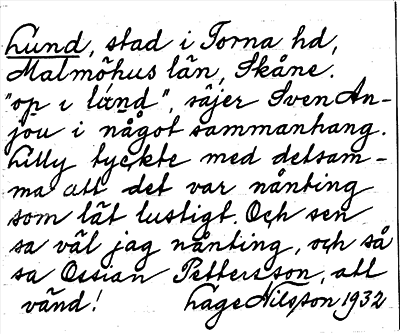 Lund, stad i Torna hd,
Malmöhus län, Skåne.
"op i länd", säjer Sven An-
jou i något sammanhang.
Lilly tyckte med detsam-
ma att det var nånting
som lät lustigt. Och sen
sa väl jag nånting, och så
sa Ossian Pettersson, att
vänd! Hage Nilsson 1932